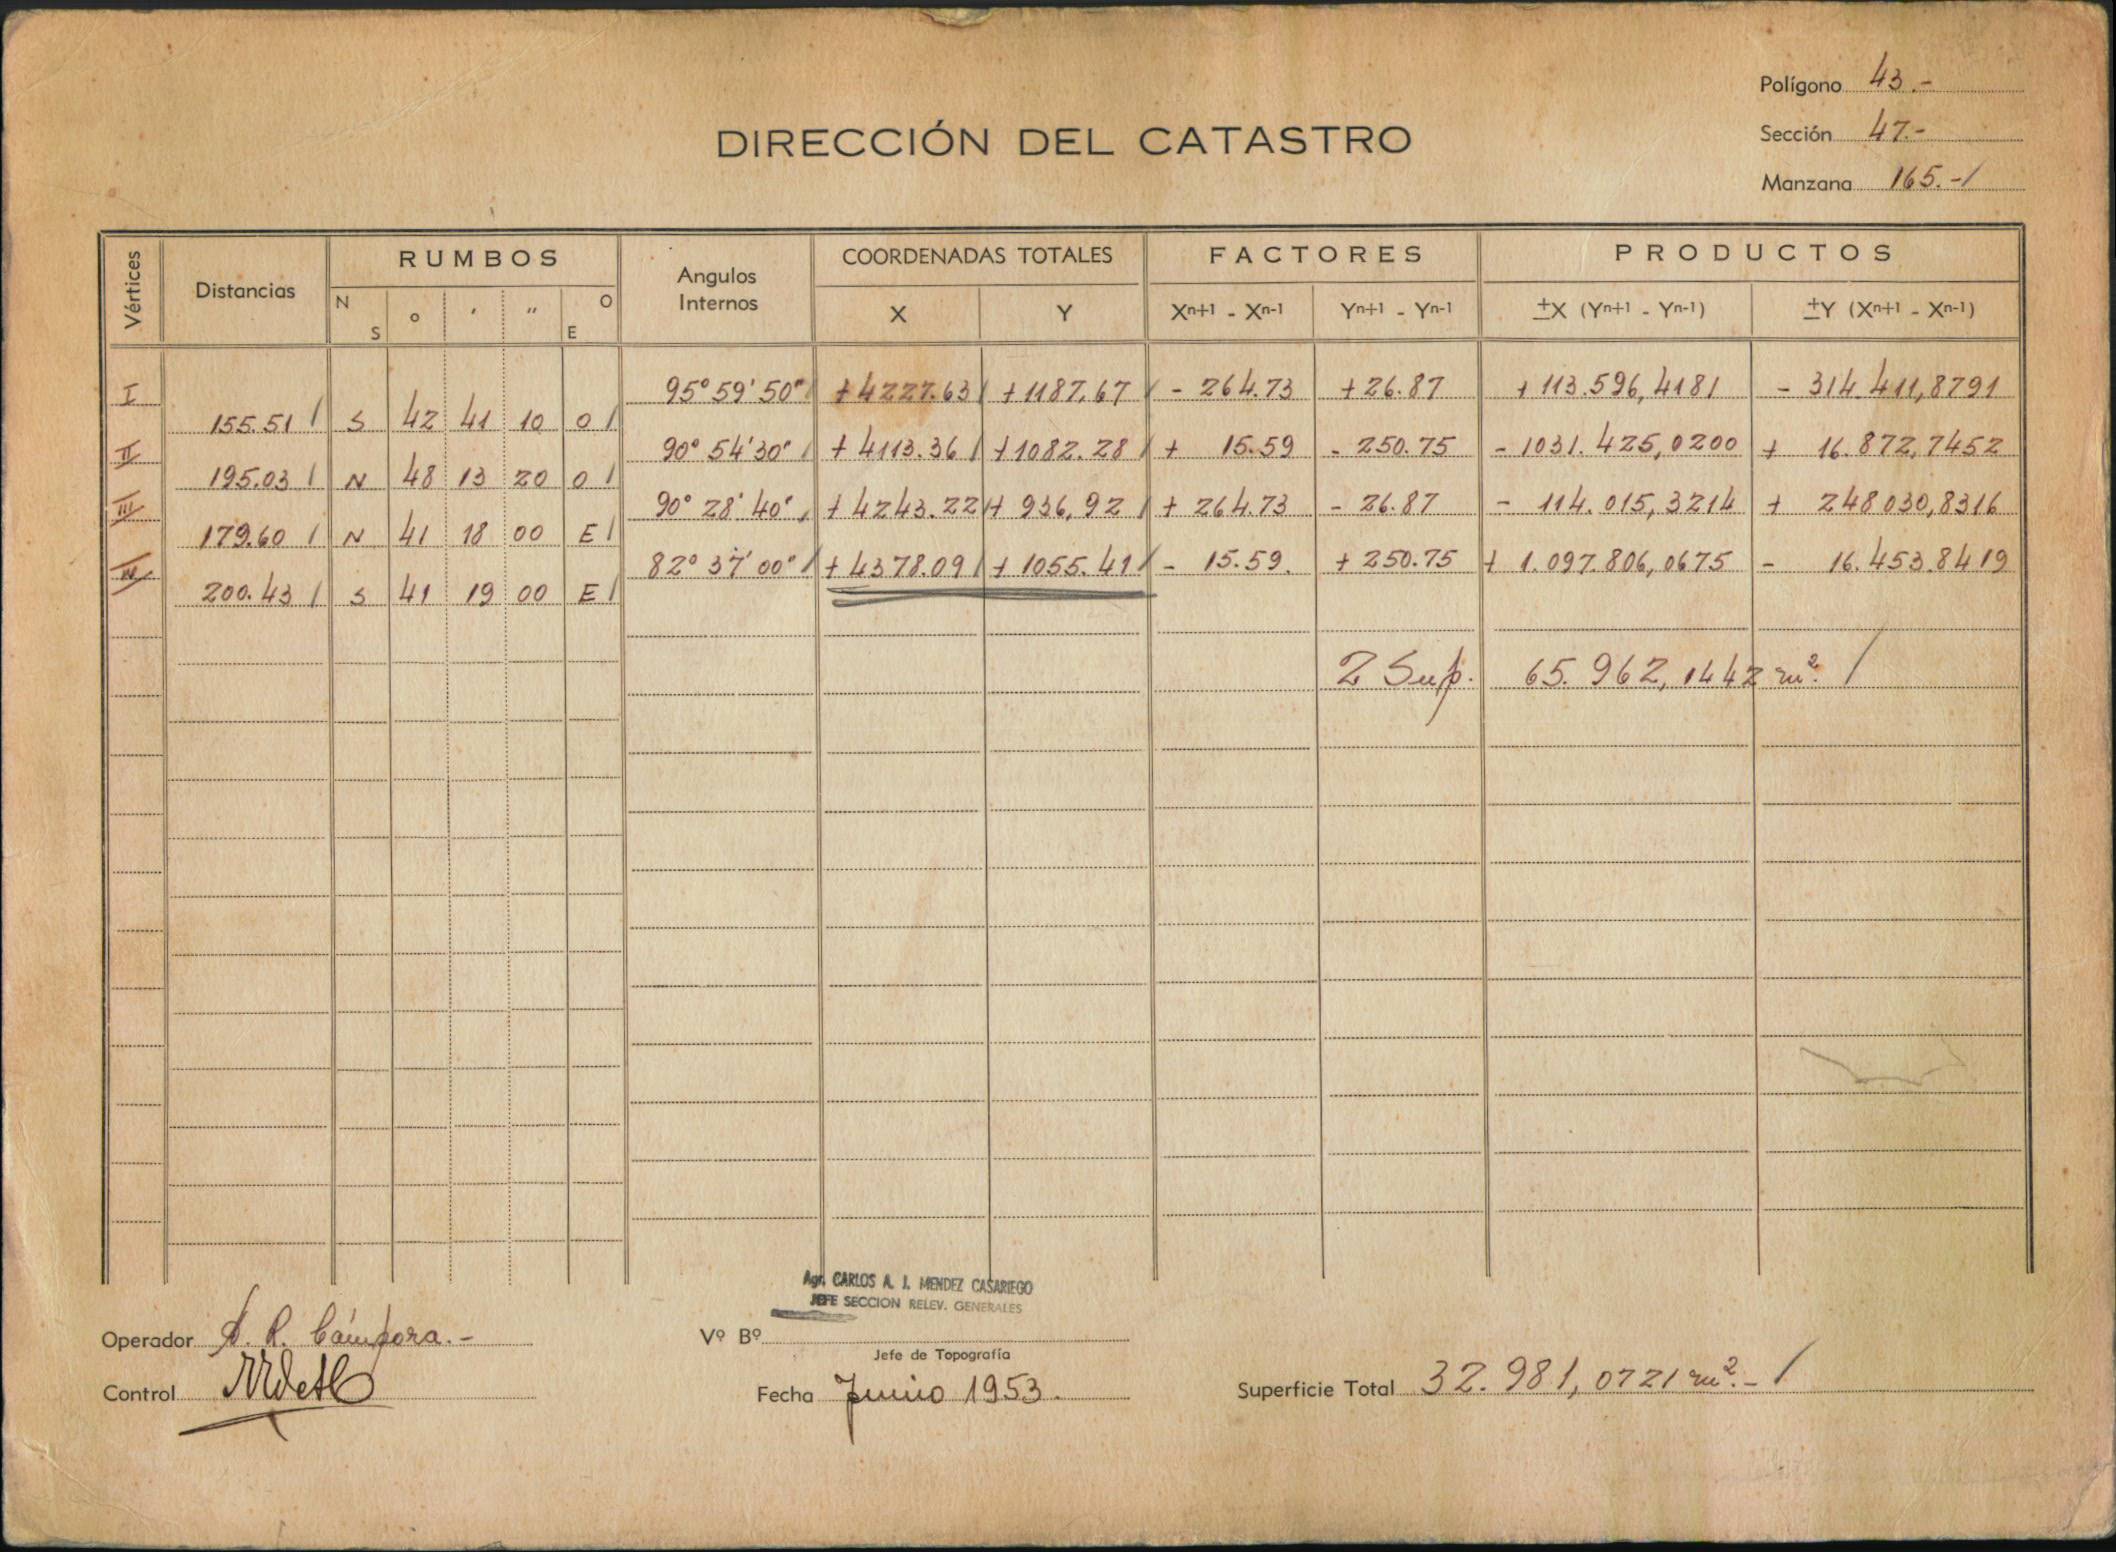 Polígono 43.-
Sección 47.-
Manzana 165.-/
DIRECCIÓN DEL CATASTRO
Vértices Distancias RUMBOS Angulos Internos COORDENADAS TOTALES FACTORES PRODUCTOS
N S o ' " O E X Y Xn+1 - Xn-1 Yn+1 - Yn-1 ±X (Yn+1 - Yn-1) ±Y (Xn+1 - Xn-1)
I 95° 59' 50" + 4227.63 + 1187,67 - 264.73 + 26.87 + 113.596,4181 - 314.411,8791
155.51 S 42 41 10 O
II 90° 54' 30" + 4113.36 + 1082.28 + 15.59 - 250.75 - 1031.425,0200 + 16.872,7452
195.03 N 48 13 20 O
III 90° 28' 40" + 4243.22 + 936,92 + 264.73 - 26.87 - 114.015,3214 + 248030,8316
179.60 N 41 18 00 E
IV 82° 37' 00" + 4378.09 + 1055.41 - 15.59. + 250.75 + 1.097.806,0675 - 16.453.8419
200.43 S 41 19 00 E
2 Sup. 65.962,1442 m². /
Agr. CARLOS A. J. MENDEZ CASARIEGO
JEFE SECCION RELEV. GENERALES
Operador A. R. Cámpora.-
Vº Bº
Jefe de Topografía
Control
Fecha Junio 1953.
Superficie Total 32.981,0721 m².- /